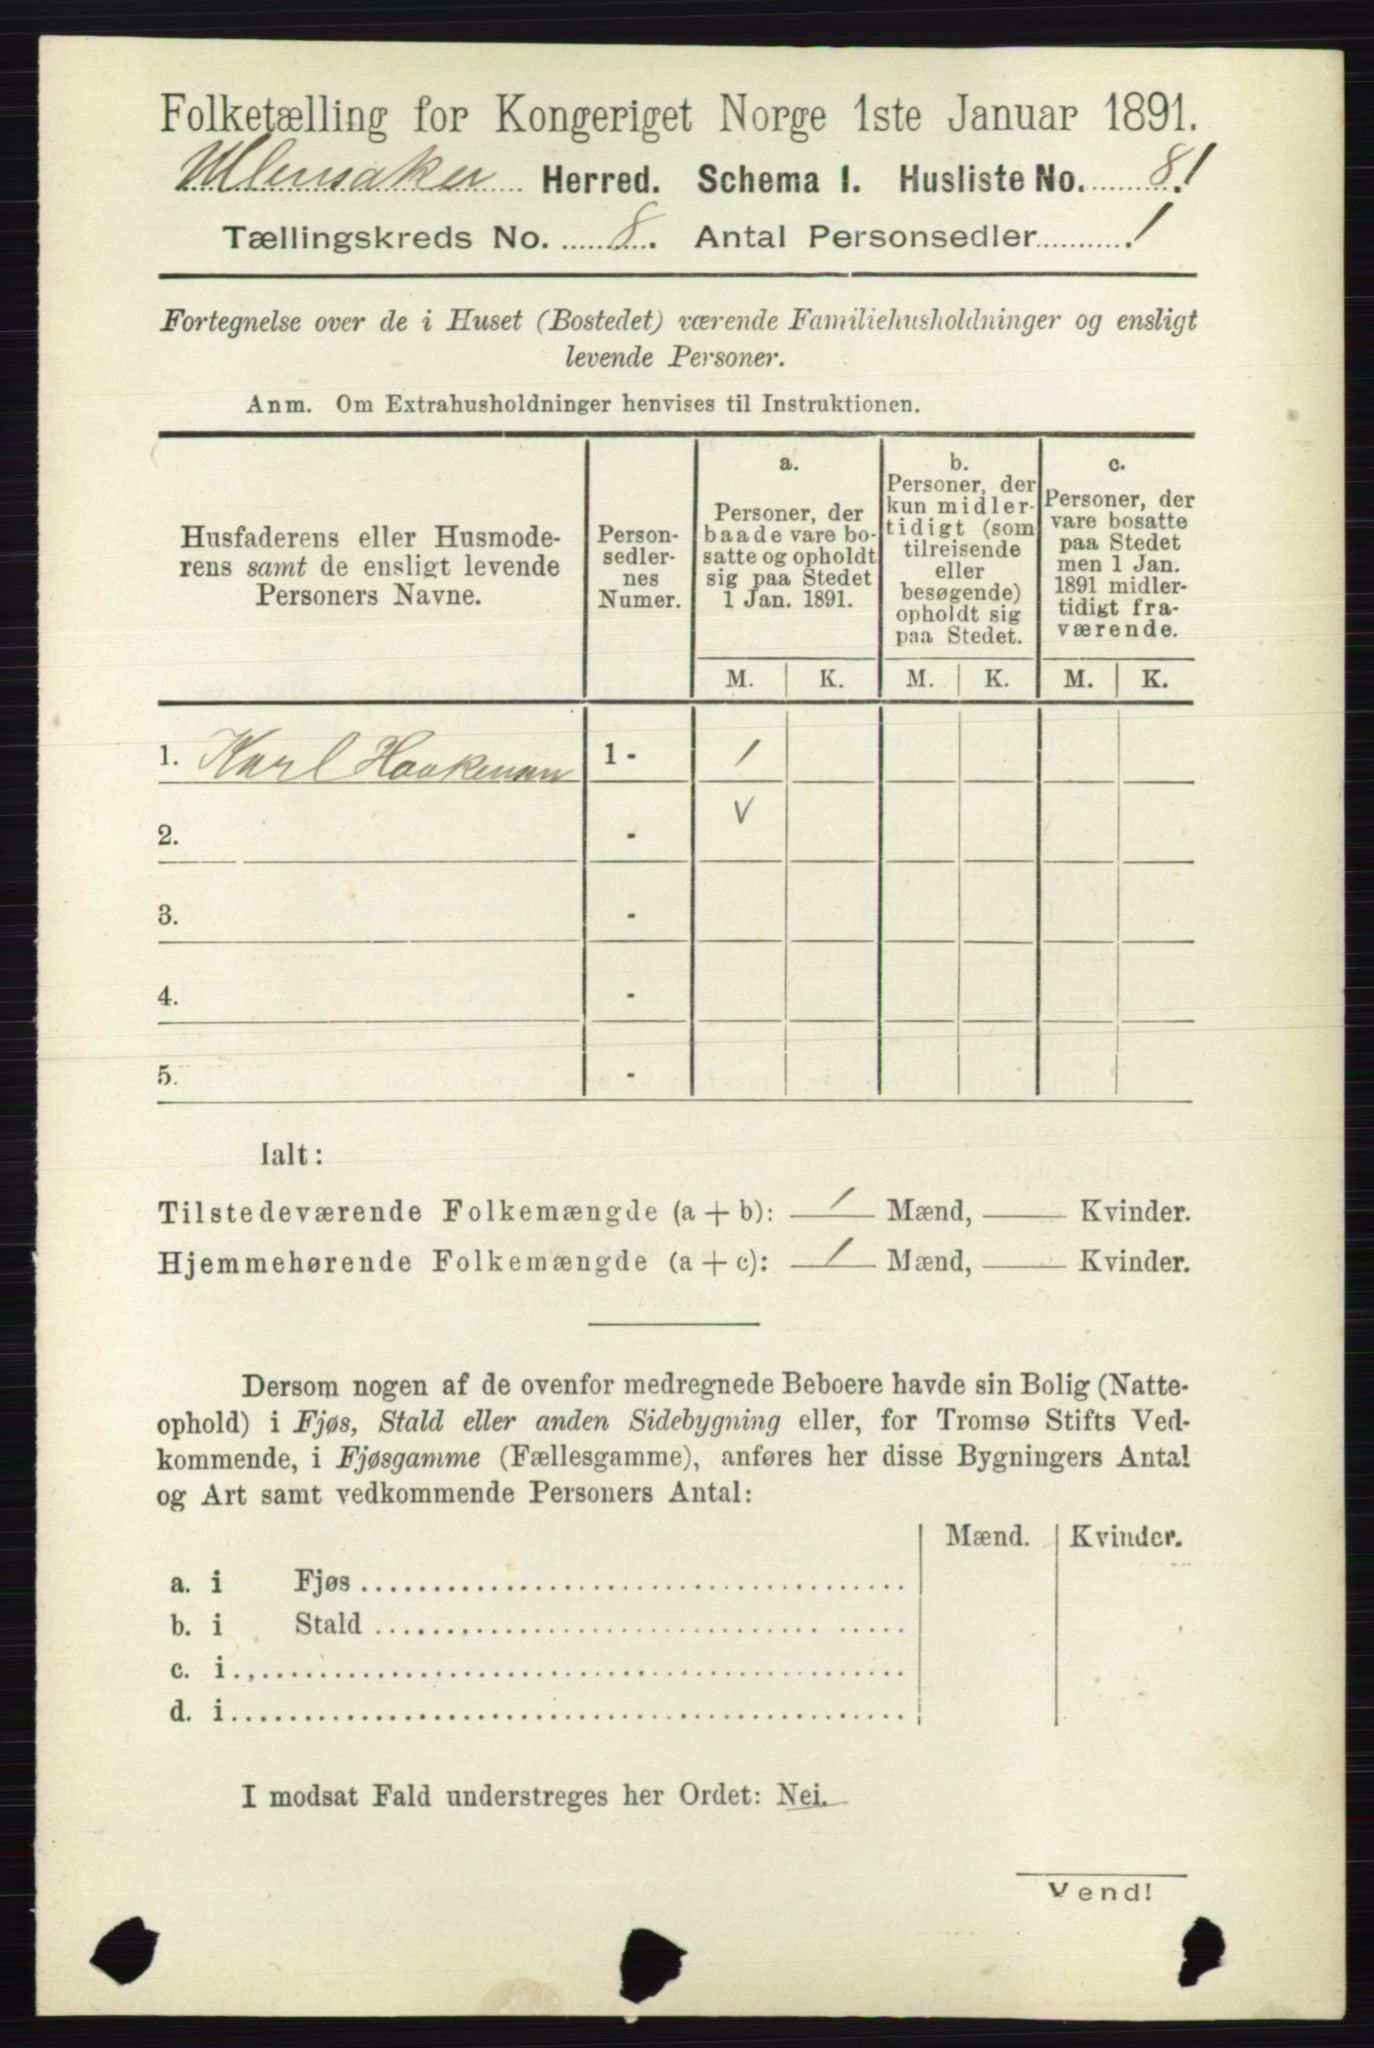 Folketælling for Kongeriget Norge 1ste Januar 1891.
Ullensaker Herred. Schema I. Husliste No. 81
Tællingskreds No. 8. Antal Personsedler 1
Fortegnelse over de i Huset (Bostedet) værende Familiehusholdninger og ensligt
levende Personer.
Anm. Om Extrahusholdninger henvises til Instruktionen.
Husfaderens eller Husmode-
rens samt de ensligt levende
Personers Navne.
Person-
sedler-
nes
Numer.
a.
Personer, der
baade vare bo-
satte og opholdt
sig paa Stedet
1 Jan. 1891.
b.
Personer, der
kun midler-
tidigt (som
tilreisende
eller
besøgende)
opholdt sig
paa Stedet.
c.
Personer, der
vare bosatte
paa Stedet
men 1 Jan.
1891 midler-
tidigt fra-
værende.
M. K. M. K. M. K.
1. Karl Haakensen 1 - 1
2. - V
3. -
4. -
5. -
Ialt:
Tilstedeværende Folkemængde (a + b): 1 Mænd, — Kvinder.
Hjemmehørende Folkemængde (a + c): 1 Mænd, — Kvinder.
Dersom nogen af de ovenfor medregnede Beboere havde sin Bolig (Natte-
ophold) i Fjøs, Stald eller anden Sidebygning eller, for Tromsø Stifts Ved-
kommende, i Fjøsgamme (Fællesgamme), anføres her disse Bygningers Antal
og Art samt vedkommende Personers Antal:
Mænd. Kvinder.
a. i Fjøs
b. i Stald
c. i
d. i
I modsat Fald understreges her Ordet: Nei.
Vend!